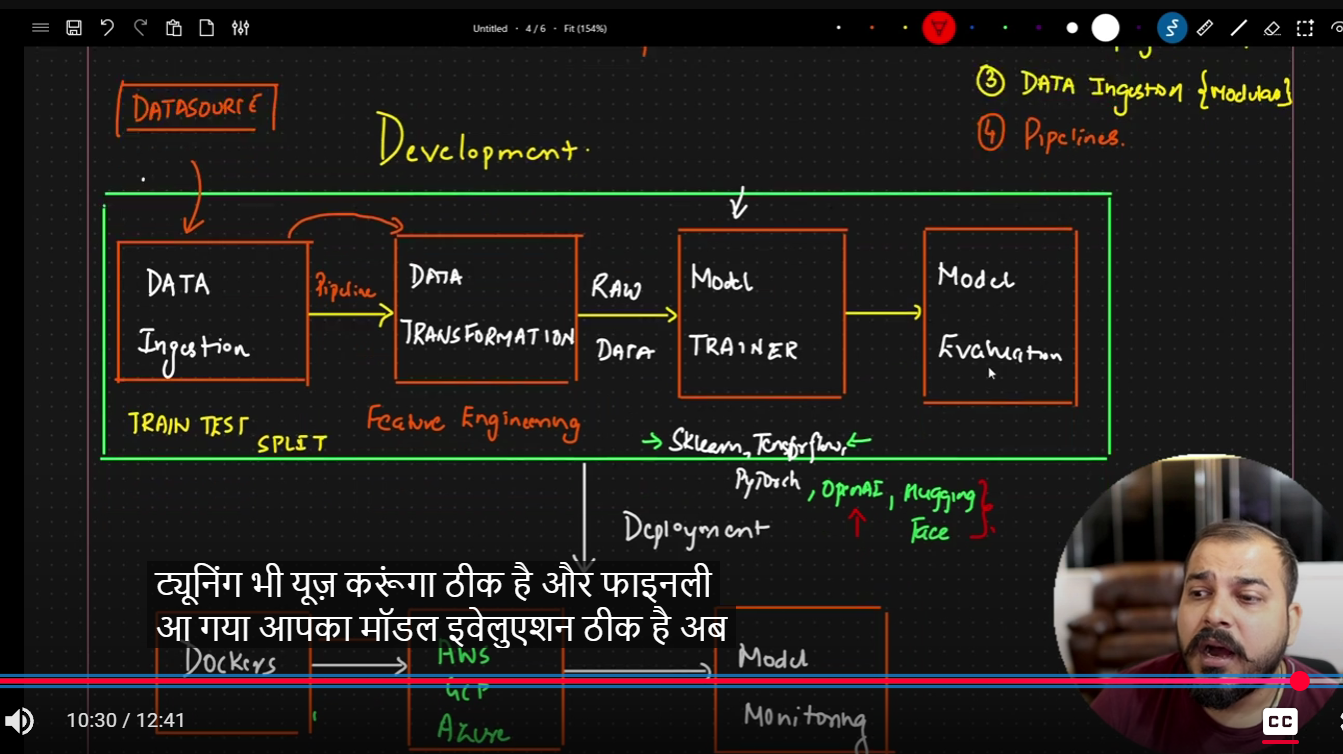 Untitled • 4 / 6 • Fit (154%)
③ DATA Ingestion {Modular}
④ Pipelines.
DATASOURCE
Development.
DATA
Ingestion
Pipeline
DATA
TRANSFORMATION
RAW
DATA
Model
TRAINER
Model
Evaluation
TRAIN TEST
SPLIT
Feature Engineering
Sklearn, Tensorflow,
PyTorch, OpenAI, Hugging
Face
Deployment
ट्यूनिंग भी यूज़ करूंगा ठीक है और फाइनली
आ गया आपका मॉडल इवेलुएशन ठीक है अब
Dockers
AWS
GCP
Azure
Model
Monitoring
10:30 / 12:41
CC